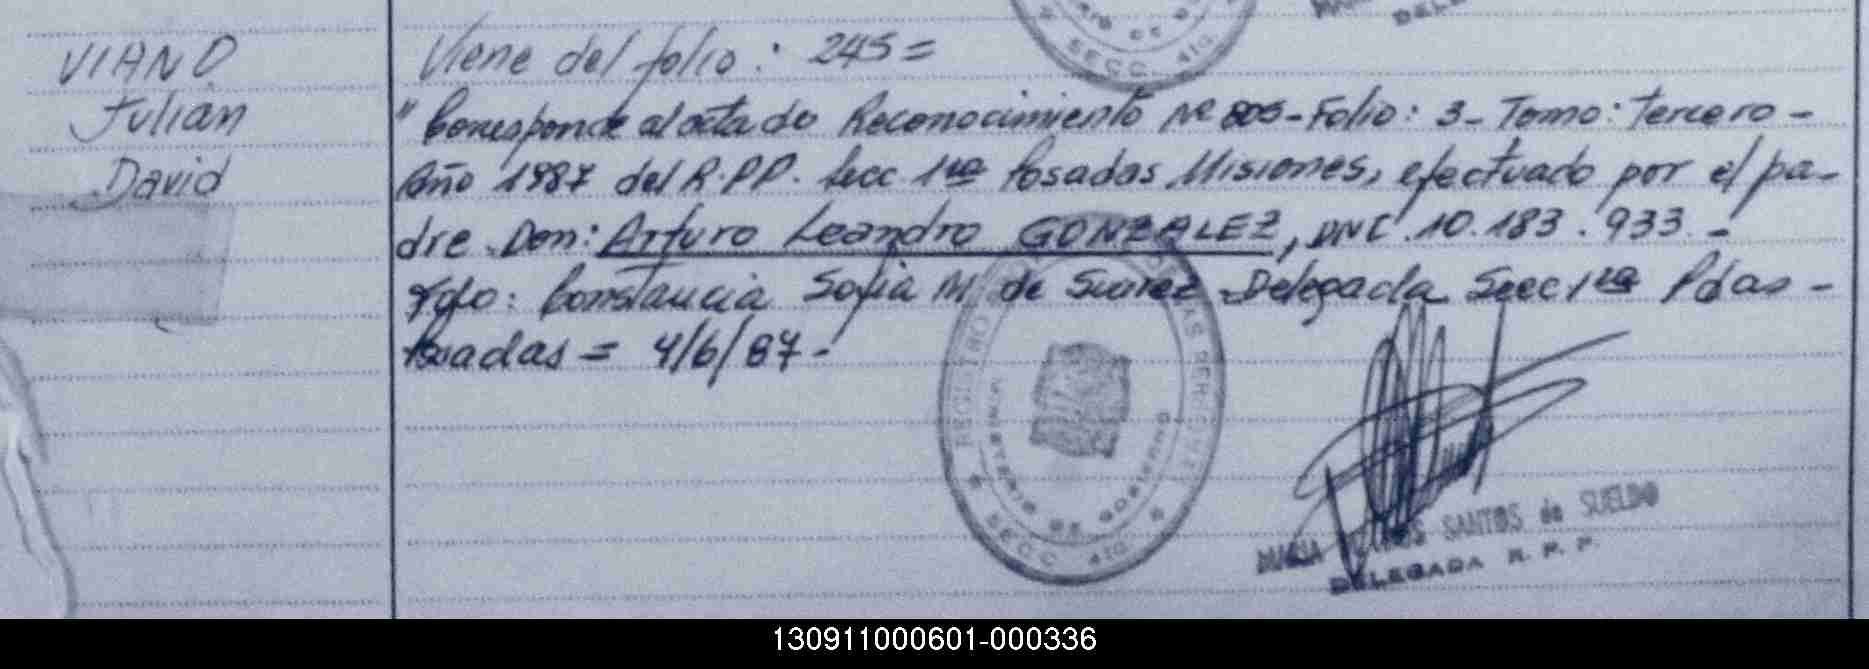 VIANO
Julian
David
Viene del folio: 245=
"Corresponde al acta de Reconocimiento Nº 805-Folio: 3- Tomo: tercero-
Año 1987 del R.P.P. Secc 1ra Posadas Misiones, efectuado por el pa-
dre Don: Arturo Leandro GONZALEZ, DNI. 10.183.933.-
Fdo: Constancia Sofia M. de Suarez Delegada Secc 1ra Pdas-
Posadas= 4/6/87-
REGISTRO PERSONAS
MINISTERIO DE GOBIERNO
SECC. 4ta.
MARIA SANTOS de SUELDO
DELEGADA R. P. P.
SECC. 4ta.
130911000601-000336